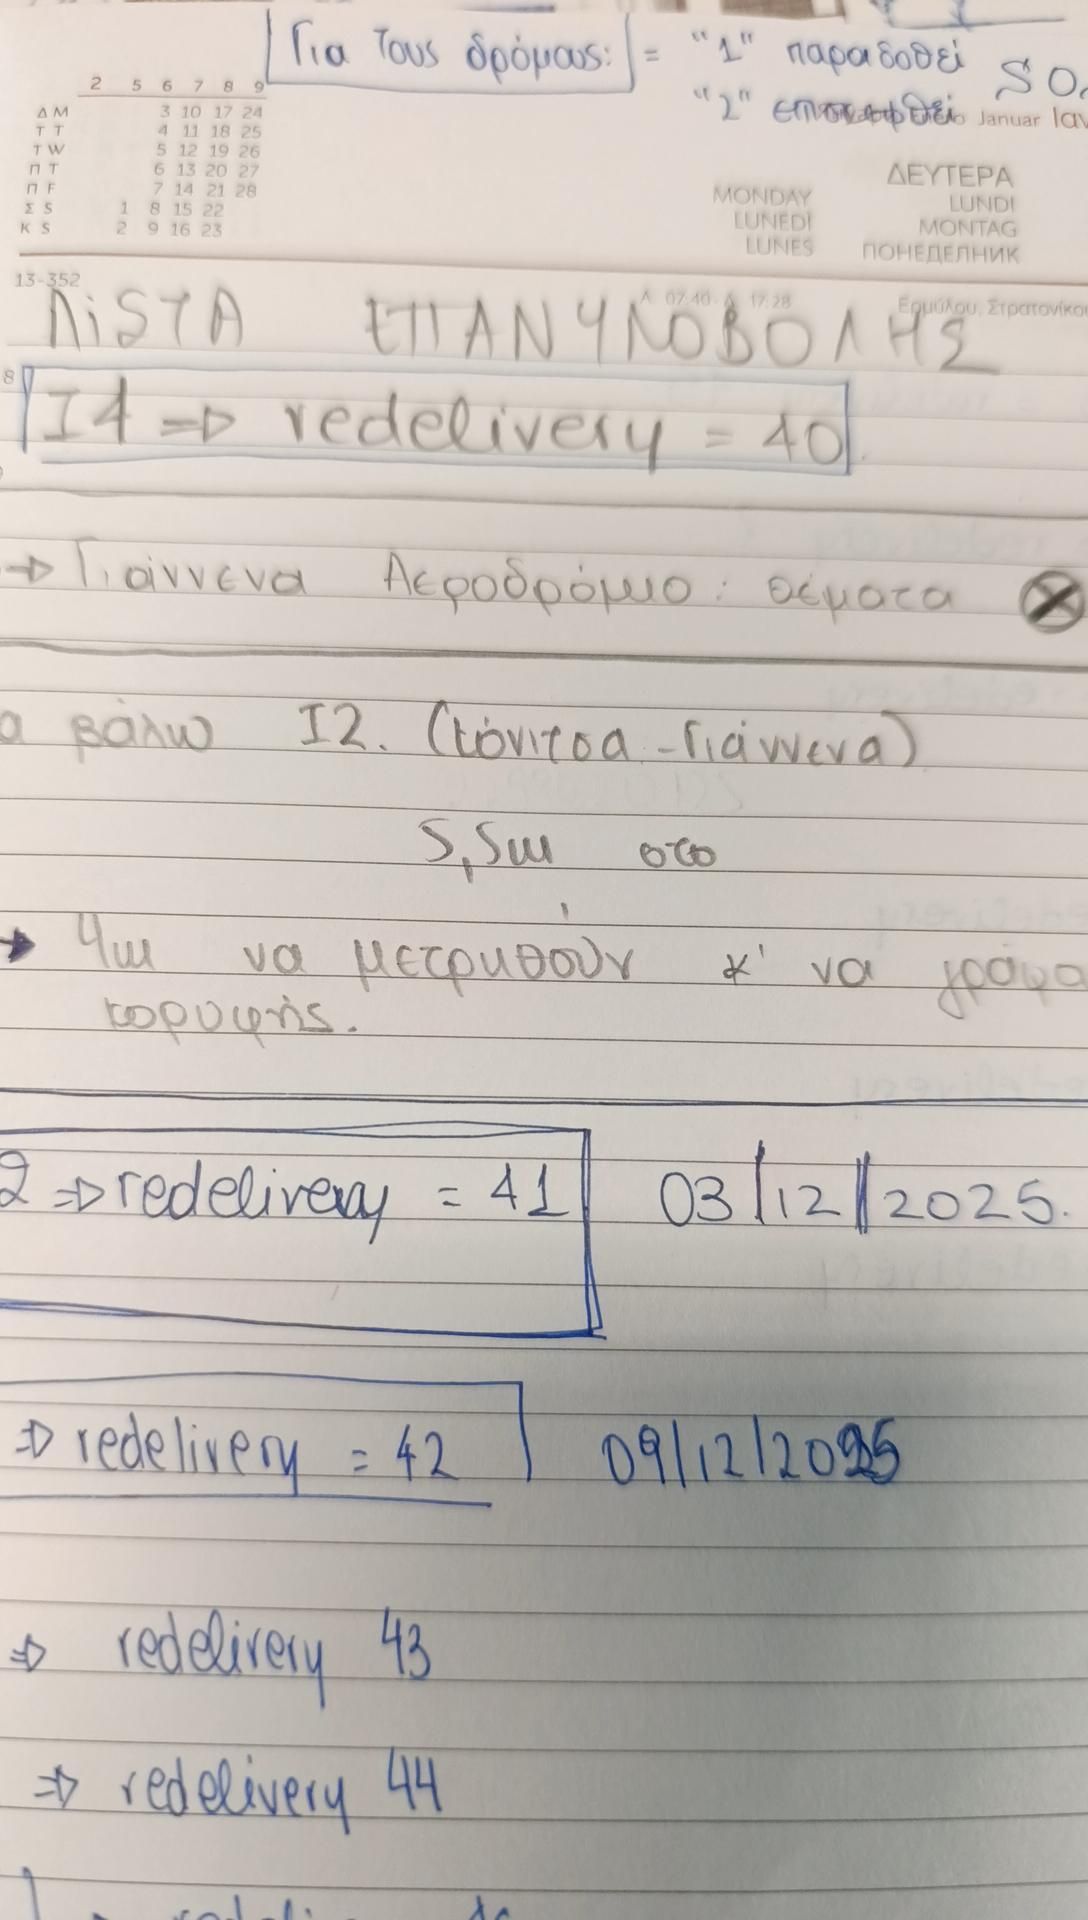 Για τους δρόμους: = "1" παραδοθεί
"2" επιστραφθεί
SO.
Januar Ιαν
2 5 6 7 8 9
Δ M 3 10 17 24
T T 4 11 18 25
T W 5 12 19 26
Π T 6 13 20 27
Π F 7 14 21 28
Σ S 1 8 15 22
K S 2 9 16 23
ΔΕΥΤΕΡΑ
MONDAY LUNDI
LUNEDÌ MONTAG
LUNES ПОНЕДЕЛНИК
13-352
Α 07:40 - Δ 17:28
Ερμύλου, Στρατονίκου
ΛiSTA ΕΠΑΝΥΠΟΒΟΛΗΣ
8
I4 => redelivery = 40
→ Γιάννενα Αεροδρόμιο: θέματα
α βάλω I2. (κόνιτσα - Γιάννενα)
5,5m στο
→ 4m να μετρηθούν κ' να γράψω
κορυφής.
2 => redelivery = 41 03/12/2025.
=> redelivery = 42 09/12/2025
=> redelivery 43
=> redelivery 44